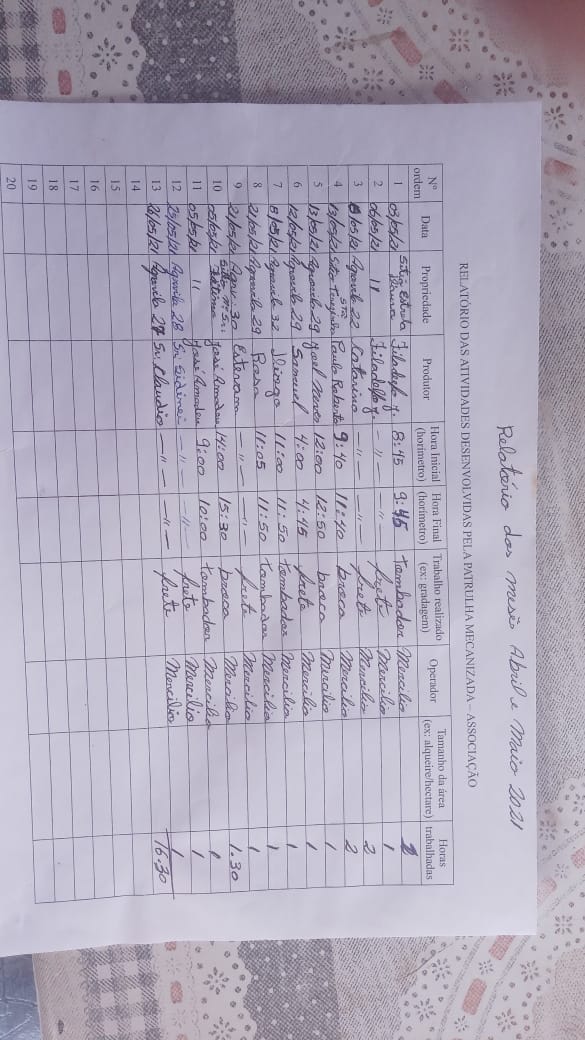 Relatório dos mesês Abril e Maio 2021
RELATÓRIO DAS ATIVIDADES DESENVOLVIDAS PELA PATRULHA MECANIZADA – ASSOCIAÇÃO
Nº ordem Data Propriedade Produtor Hora Inicial (horímetro) Hora Final (horímetro) Trabalho realizado (ex: gradagem) Operador Tamanho da área (ex: alqueire/hectare) Horas trabalhadas
1 03/05/21 Sitio Estrela Filadelfo J. 8:45 9:45 Tombador Mercilio 1
2 06/05/21 11 Filadelfo J. — " — — " — frete Mercilio 2
3 /05/21 Agrovila 22 Catarino — " — — " — frete Mercilio 2
4 13/05/21 Sitio Stª Terezinha Paulo Roberto 9:40 11:40 broca Mercilio
5 13/05/21 Agrovila 29 Joel 12:00 12:50 broca Mercilio 1
6 12/05/21 Agrovila 29 Samuel 4:00 4:45 frete Mercilio 1
7 8/05/21 Agrovila 32 Diogo 11:00 11:50 Tombador Mercilio 1
8 21/05/21 Agrovila 29 Rosa 11:05 11:50 Tombador Mercilio 1
9 21/05/21 Agrov. 30 Estevam — " — — " — frete Mercilio 1
10 05/05/21 Sitio Nª Srª Fatima José Amadeu 14:00 15:30 broca Mercilio 1.30
11 05/05/21 11 José Amadeu 9:00 10:00 Tombador Mercilio 1
12 25/05/21 Agrovila 28 Sr Sidinei — " — — " — frete Mercilio 1
13 26/05/21 Agrovila 27 Sr. Claudio — " — — " — frete Mercilio 1
16.30
14
15
16
17
18
19
20